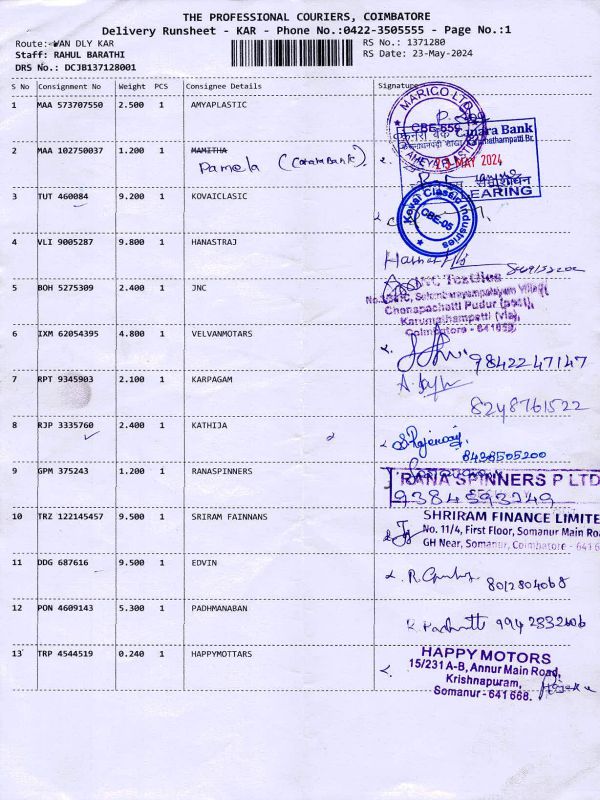 THE PROFESSIONAL COURIERS, COIMBATORE
Delivery Runsheet - KAR - Phone No.:0422-3505555 - Page No.:1
Route: VAN DLY KAR
RS No.: 1371280
Staff: RAHUL BARATHI
RS Date: 23-May-2024
DRS No.: DCJB137128001
S No Consignment No Weight PCS Consignee Details Signature
1 MAA 573707550 2.500 1 AMYAPLASTIC
MARICO LTD
CBE-659
Canara Bank
2 MAA 102750037 1.200 1 MAMITHA
Pamela (Canara Bank)
23 MAY 2024
CLEARING
3 TUT 460084 9.200 1 KOVAICLASIC
Kovai Classic Industries
CBE-05
4 VLI 9005287 9.800 1 HANASTRAJ
5 BOH 5275309 2.400 1 JNC
Textiles
Chenapachatti Pudur (post),
Karumathampatti (via),
Coimbatore - 641659
6 IXM 62054395 4.800 1 VELVANMOTARS
9842247147
7 RPT 9345903 2.100 1 KARPAGAM
8248761522
8 RJP 3335760 2.400 1 KATHIJA
8438505200
9 GPM 375243 1.200 1 RANASPINNERS
RANA SPINNERS P LTD
10 TRZ 122145457 9.500 1 SRIRAM FAINNANS
SHRIRAM FINANCE LIMITE
No. 11/4, First Floor, Somanur Main Roa
GH Near, Somanur, Coimbatore - 641 6
11 DDG 687616 9.500 1 EDVIN
8012804068
12 PON 4609143 5.300 1 PADHMANABAN
9942332606
13 TRP 4544519 0.240 1 HAPPYMOTTARS
HAPPY MOTORS
15/231 A-B, Annur Main Road,
Krishnapuram,
Somanur - 641 668.